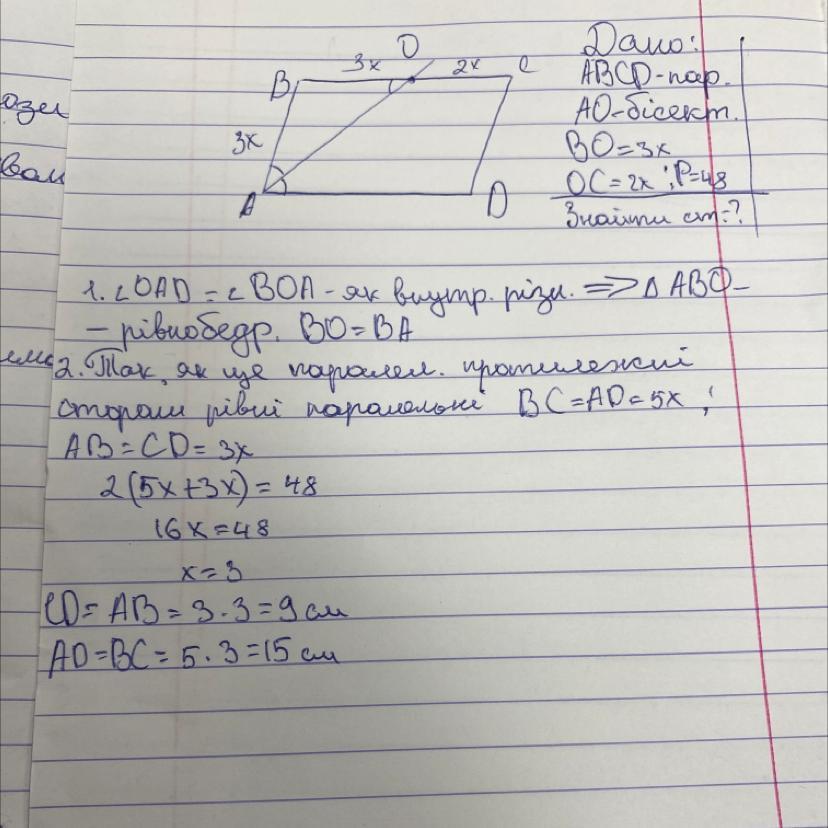 ози
вам
O
3x
2x
B
C
3x
A
D
Дано:
ABCD-пар.
AO-бісект.
BO=3x
OC=2x ; P=48
Знайти ст=?
1. ∠OAD = ∠BOA - як внутр. різн. => △ ABO -
- рівнобедр. BO=BA
2. Так як це паралел. протилежні
сторони рівні паралельні BC=AD=5x ;
AB=CD=3x
2(5x+3x)=48
16x=48
x=3
CD=AB=3·3=9 см
AD=BC=5·3=15 см